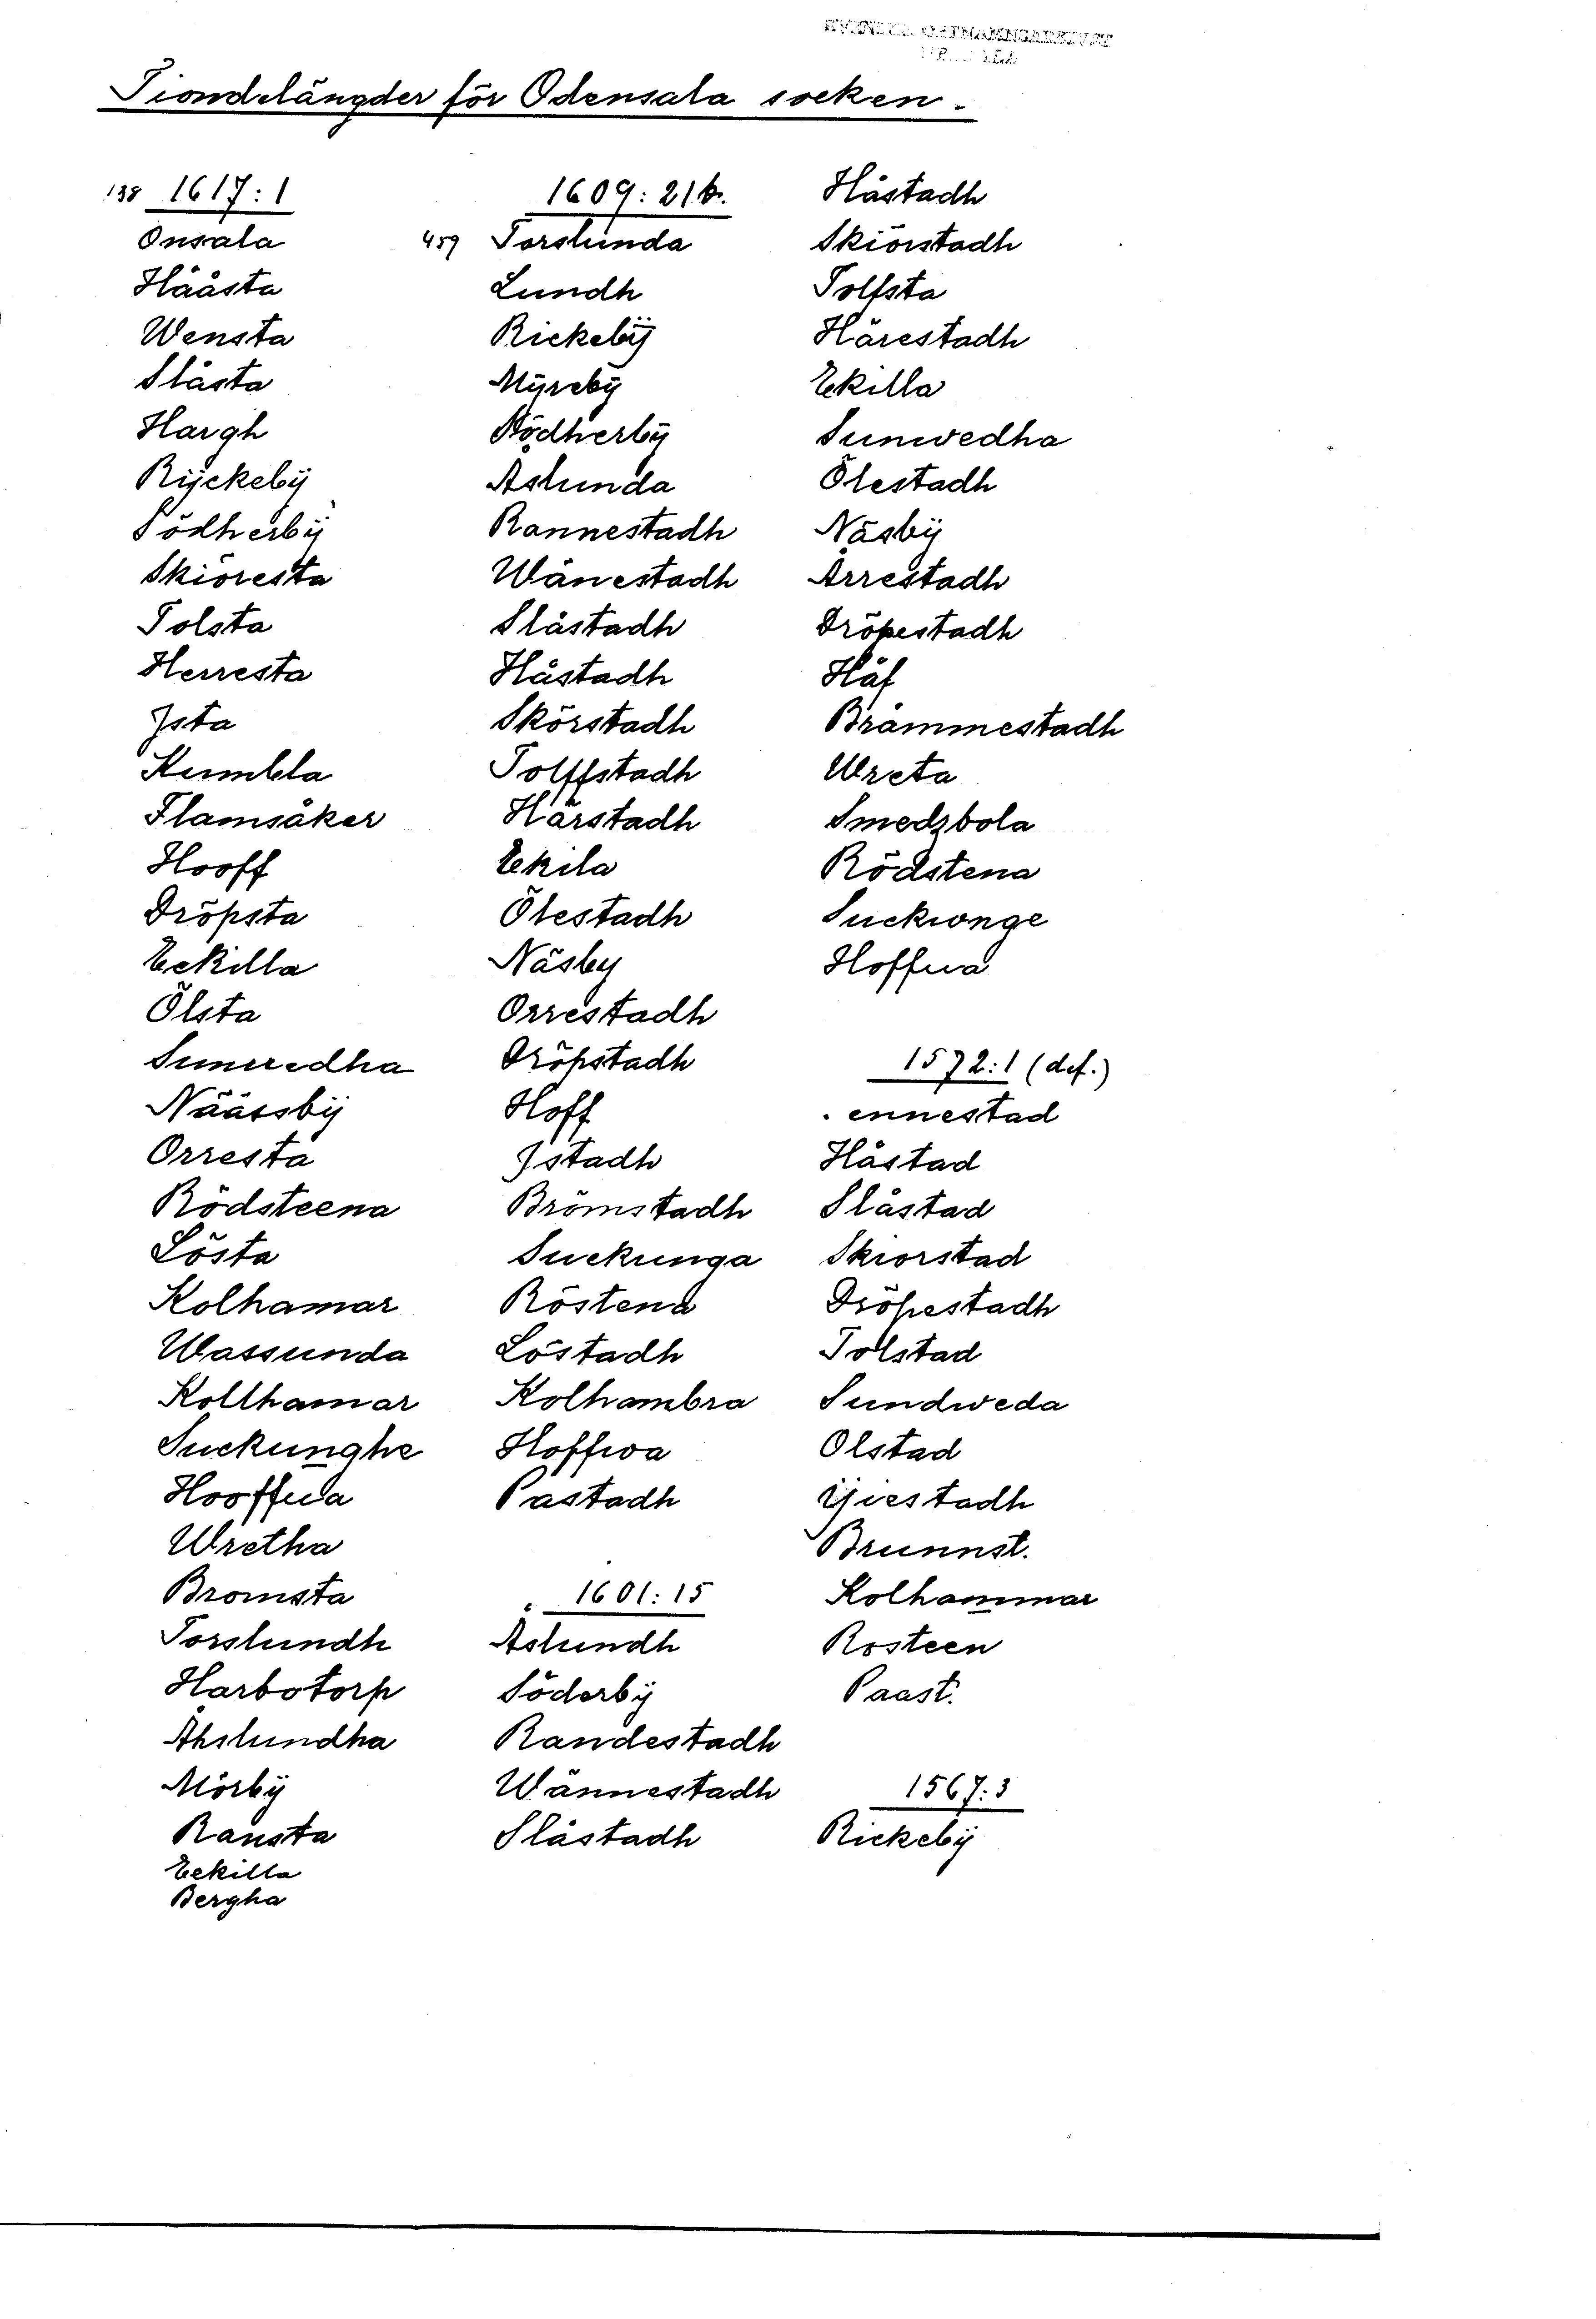 SVENSKA ORTNAMNSARKIVET
Tiondelängder för Odensala socken.
138 1617:1
Onsala
Hååsta
Wensta
Slåsta
Hargh
Rijckebÿ
Södherbÿ
Skiöresta
Tolsta
Herresta
Jsta
Kumbla
Flamsåker
Hooff
Dröpsta
Eckilla
Õlsta
Sunuedha
Näässbÿ
Orresta
Rödsteena
Lösta
Kolhamar
Wassunda
Kollhamar
Suckunghe
Hooffua
Wretha
Bromsta
Torslundh
Harbotorp
Åhslundha
Mörbÿ
Ransta
Eekilla
Bergha
1609:21b.
459 Torslunda
Lundh
Rickebÿ
Mÿrebÿ
Södherbÿ
Åslunda
Rannestadh
Wänestadh
Slåstadh
Håstadh
Skörstadh
Tolffstadh
Härstadh
Ekila
Õlestadh
Näsby
Orrestadh
Dröpstadh
Hoff
Jstadh
Brömstadh
Suckunga
Röstena
Löstadh
Kolhambra
Hoffwa
Pastadh
1601:15
Åslundh
Söderbÿ
Randestadh
Wännestadh
Slåstadh
Håstadh
Skiörstadh
Tolfsta
Härestadh
Ekilla
Sunwedha
Õlestadh
Näsbÿ
Årrestadh
Dröpestadh
Håf
Brammestadh
Wreta
Smedzbola
Rödstena
Suckwnge
Hoffua
1572:1 (def.)
. ennestad
Håstad
Slåstad
Skiorstad
Dröpestadh
Tolstad
Sundweda
Olstad
Ÿiestadh
Brunnst.
Kolhammar
Rosteen
Paast.
1567:3
Rickebÿ